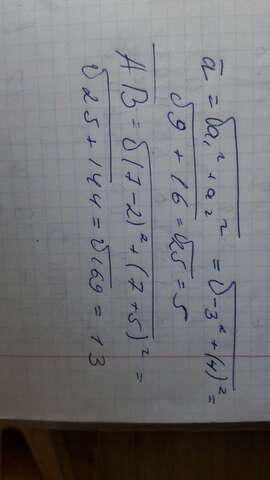 a̅ = √a₁² + a₂² = √-3² + (4)² =
√9 + 16 = √25 = 5
AB = √(7-2)² + (7+5)² =
√25 + 144 = √169 = 13